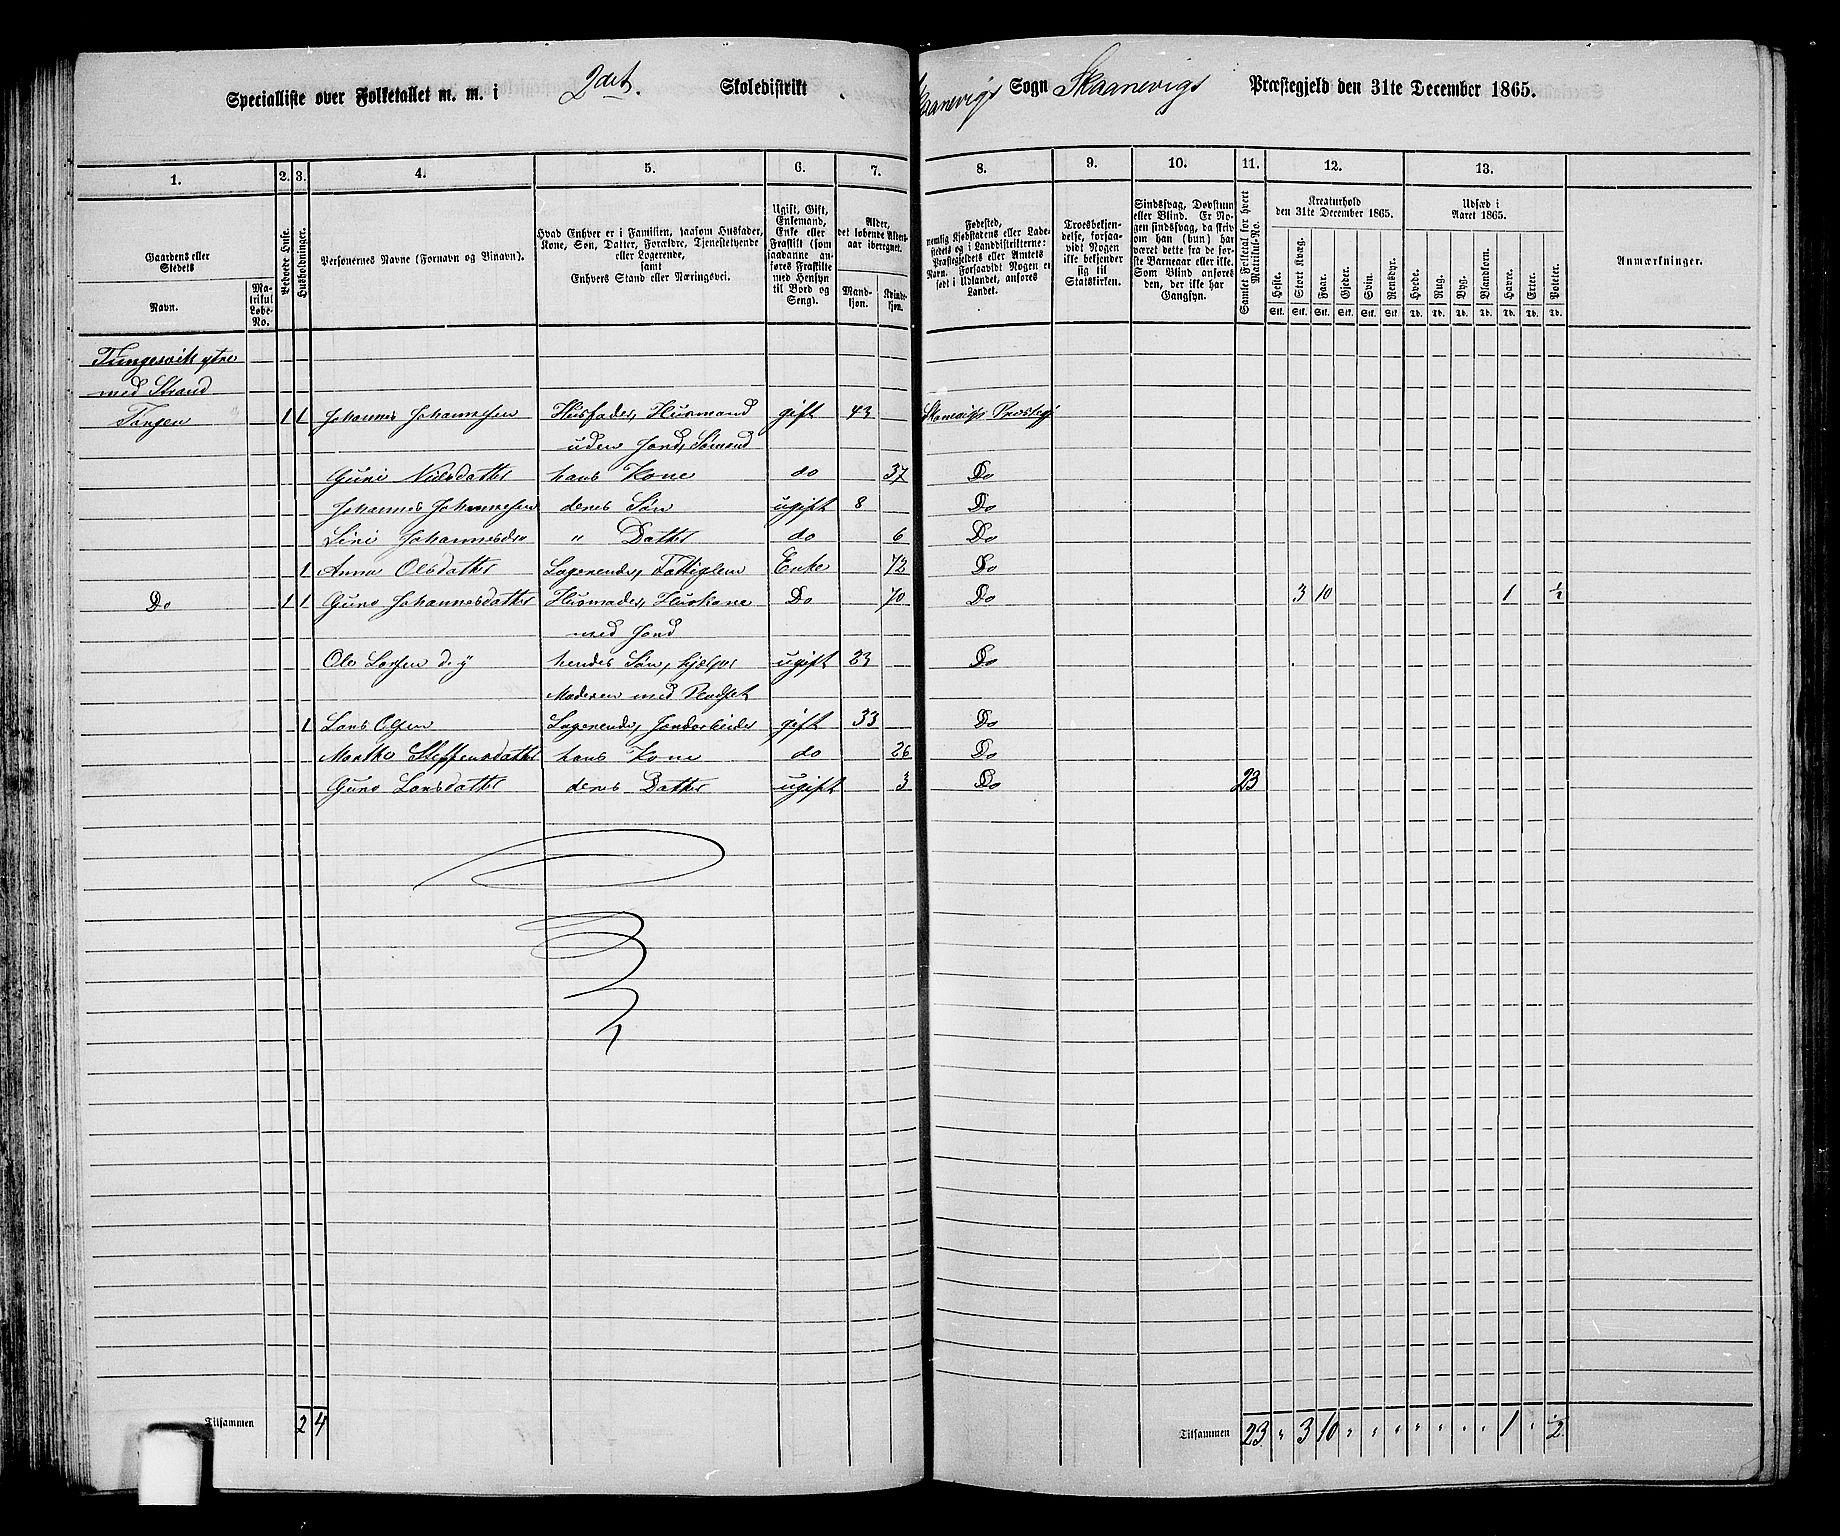 Specialliste over Folketallet m. m. i 2det. Skoledistrikt Skaanevigs Sogn Skaanevigs Præstegjeld den 31te December 1865.
1. 2. 3. 4. 5. 6. 7. 8. 9. 10. 11. 12. 13.
Gaardens eller Stedets
Navn.
Matrikul Løbe-No.
Beboede Huse.
Husholdninger.
Personernes Navne (Fornavn og Binavn).
Hvad Enhver er i Familien, saasom Husfader,
Kone, Søn, Datter, Forældre, Tjenestetyende
eller Logerende,
samt
Enhvers Stand eller Næringsvei.
Ugift, Gift,
Enkemand,
Enke eller
Fraskilt (som
saadanne anføres
Fraskilte
med Hensyn
til Bord og
Seng).
Alder,
det løbende Alders-
aar iberegnet.
Mandkjøn.
Kvindekjøn.
Fødested,
nemlig Kjøbstadens eller Ladestedets
og i Landdistrikterne:
Præstegjeldets eller Amtets
Navn. Forsaavidt Nogen er
født i Udlandet, anføres
Landet.
Troesbekjendelse,
forsaavidt Nogen
ikke bekjender
sig til
Statskirken.
Sindssvag, Døvstum
eller Blind. Er Nogen
sindssvag, da skrives
om han (hun) har
været dette fra de første
Barneaar eller ikke.
Som Blind anføres
den, der ikke har
Gangsyn.
Samlet Folketal for hvert Matrikul-No.
Kreaturhold
den 31te December 1865.
Heste. Stort Kvæg. Faar. Gjeder. Svin. Rensdyr.
Stk. Stk. Stk. Stk. Stk. Stk.
Udsæd i
Aaret 1865.
Hvede. Rug. Byg. Blandkorn. Havre. Erter. Poteter.
Td. Td. Td. Td. Td. Td. Td.
Anmærkninger.
Tungesvik ytre
med Strand
Tangen 1 1 Johannes Johannesen Husfader, Husmand gift 43 Skanevigs Præstegj
uden Jord, Sømand
Guri Nielsdatter hans Kone do 37 Do
Johannes Johannesen deres Søn ugift 8 Do
Siri Johannesdtr " Datter do 6 Do
1 Anna Olsdatter Logerende, Fattiglem Enke 72 Do
Do 1 1 Guro Johannesdatter Husmoder, Huskone Do 70 Do 3 10 1 ½
med Jord
Ole Larsen d. y hendes Søn, hjelper ugift 23 Do
Moderen med
1 Lars Olsen Logerende, Jordarbeider gift 33 Do
Marthe Steffensdatter hans Kone do 26 Do
Guro Larsdatter deres Datter ugift 3 Do 23
Tilsammen 2 4
Tilsammen 23 " 3 10 " " " " " " " 1 " ½